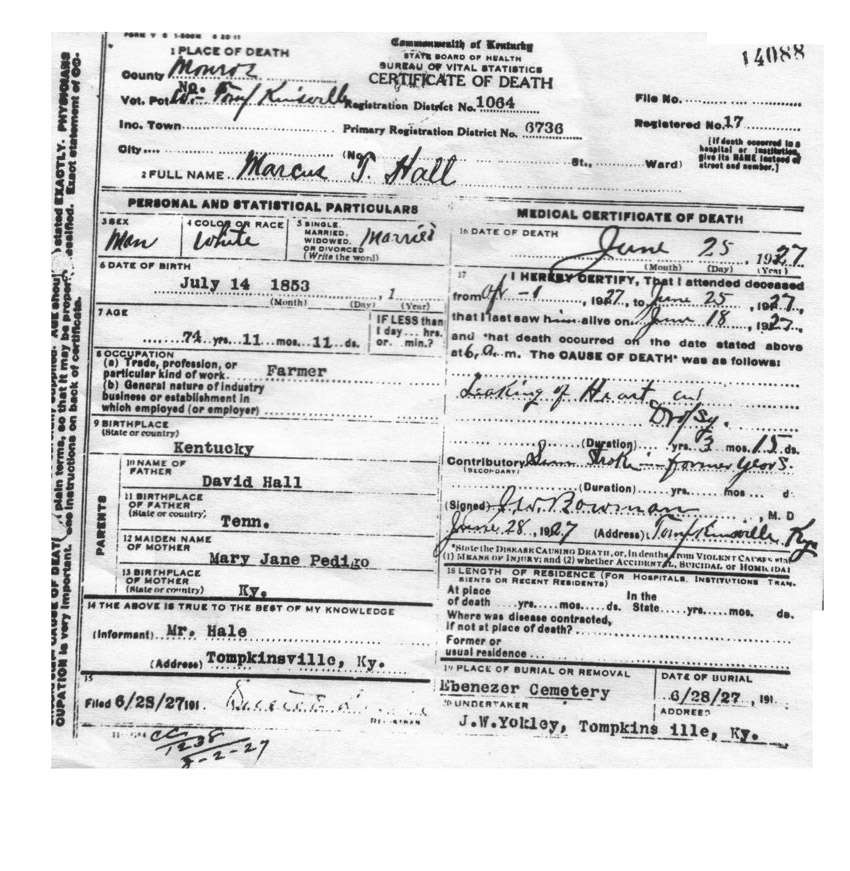 Commonwealth of Kentucky
STATE BOARD OF HEALTH
BUREAU OF VITAL STATISTICS
CERTIFICATE OF DEATH
14088
1 PLACE OF DEATH
County Monroe
Vot. Pct. No. W- Tompkinsville
Registration District No. 1064
File No.
Inc. Town
Primary Registration District No. 6736
Registered No. 17
City
(No.
St., Ward)
(If death occurred in a
hospital or institution,
give its NAME instead of
street and number.]
2 FULL NAME Marcus T. Hall
PERSONAL AND STATISTICAL PARTICULARS
3 SEX
Man
4 COLOR OR RACE
White
5 SINGLE,
MARRIED,
WIDOWED,
OR DIVORCED
(Write the word)
Married
6 DATE OF BIRTH
July 14 1853 , 1
(Month) (Day) (Year)
7 AGE
74 yrs. 11 mos. 11 ds.
IF LESS than
1 day... hrs.
or... min.?
8 OCCUPATION
(a) Trade, profession, or
particular kind of work. Farmer
(b) General nature of industry
business or establishment in
which employed (or employer)
9 BIRTHPLACE
(State or country)
Kentucky
PARENTS
10 NAME OF
FATHER
David Hall
11 BIRTHPLACE
OF FATHER
(State or country)
Tenn.
12 MAIDEN NAME
OF MOTHER
Mary Jane Pedigo
13 BIRTHPLACE
OF MOTHER
(State or country) Ky.
14 THE ABOVE IS TRUE TO THE BEST OF MY KNOWLEDGE
(Informant) Mr. Hale
(Address) Tompkinsville, Ky.
15
Filed 6/28/27 191
REGISTRAR
CC
1238
8-2-27
MEDICAL CERTIFICATE OF DEATH
16 DATE OF DEATH
June 25 , 1927
(Month) (Day) (Year)
17 I HEREBY CERTIFY, That I attended deceased
from Ap - 1 , 1927, to June 25 , 1927,
that I last saw him alive on June 18 , 1927,
and that death occurred on the date stated above
at 6, a. m. The CAUSE OF DEATH* was as follows:
Leaking of Heart and
Dropsy.
(Duration) yrs. 3 mos. 15 ds.
Contributory Sun Stroke in former years.
(SECONDARY)
(Duration) yrs. mos. d
(Signed) J.W. Bowman , M. D
June 28 , 1927 (Address) Tompkinsville Ky
*State the DISEASE CAUSING DEATH, or, in deaths from VIOLENT CAUSES state
(1) MEANS OF INJURY; and (2) whether ACCIDENTAL, SUICIDAL or HOMICIDAL
18 LENGTH OF RESIDENCE (FOR HOSPITALS, INSTITUTIONS TRAN-
SIENTS OR RECENT RESIDENTS)
At place In the
of death yrs. mos. ds. State yrs. mos. ds.
Where was disease contracted,
if not at place of death?
Former or
usual residence
19 PLACE OF BURIAL OR REMOVAL
Ebenezer Cemetery
DATE OF BURIAL
6/28/27 , 191
20 UNDERTAKER
ADDRESS
J.W.Yokley, Tompkins ille, Ky.